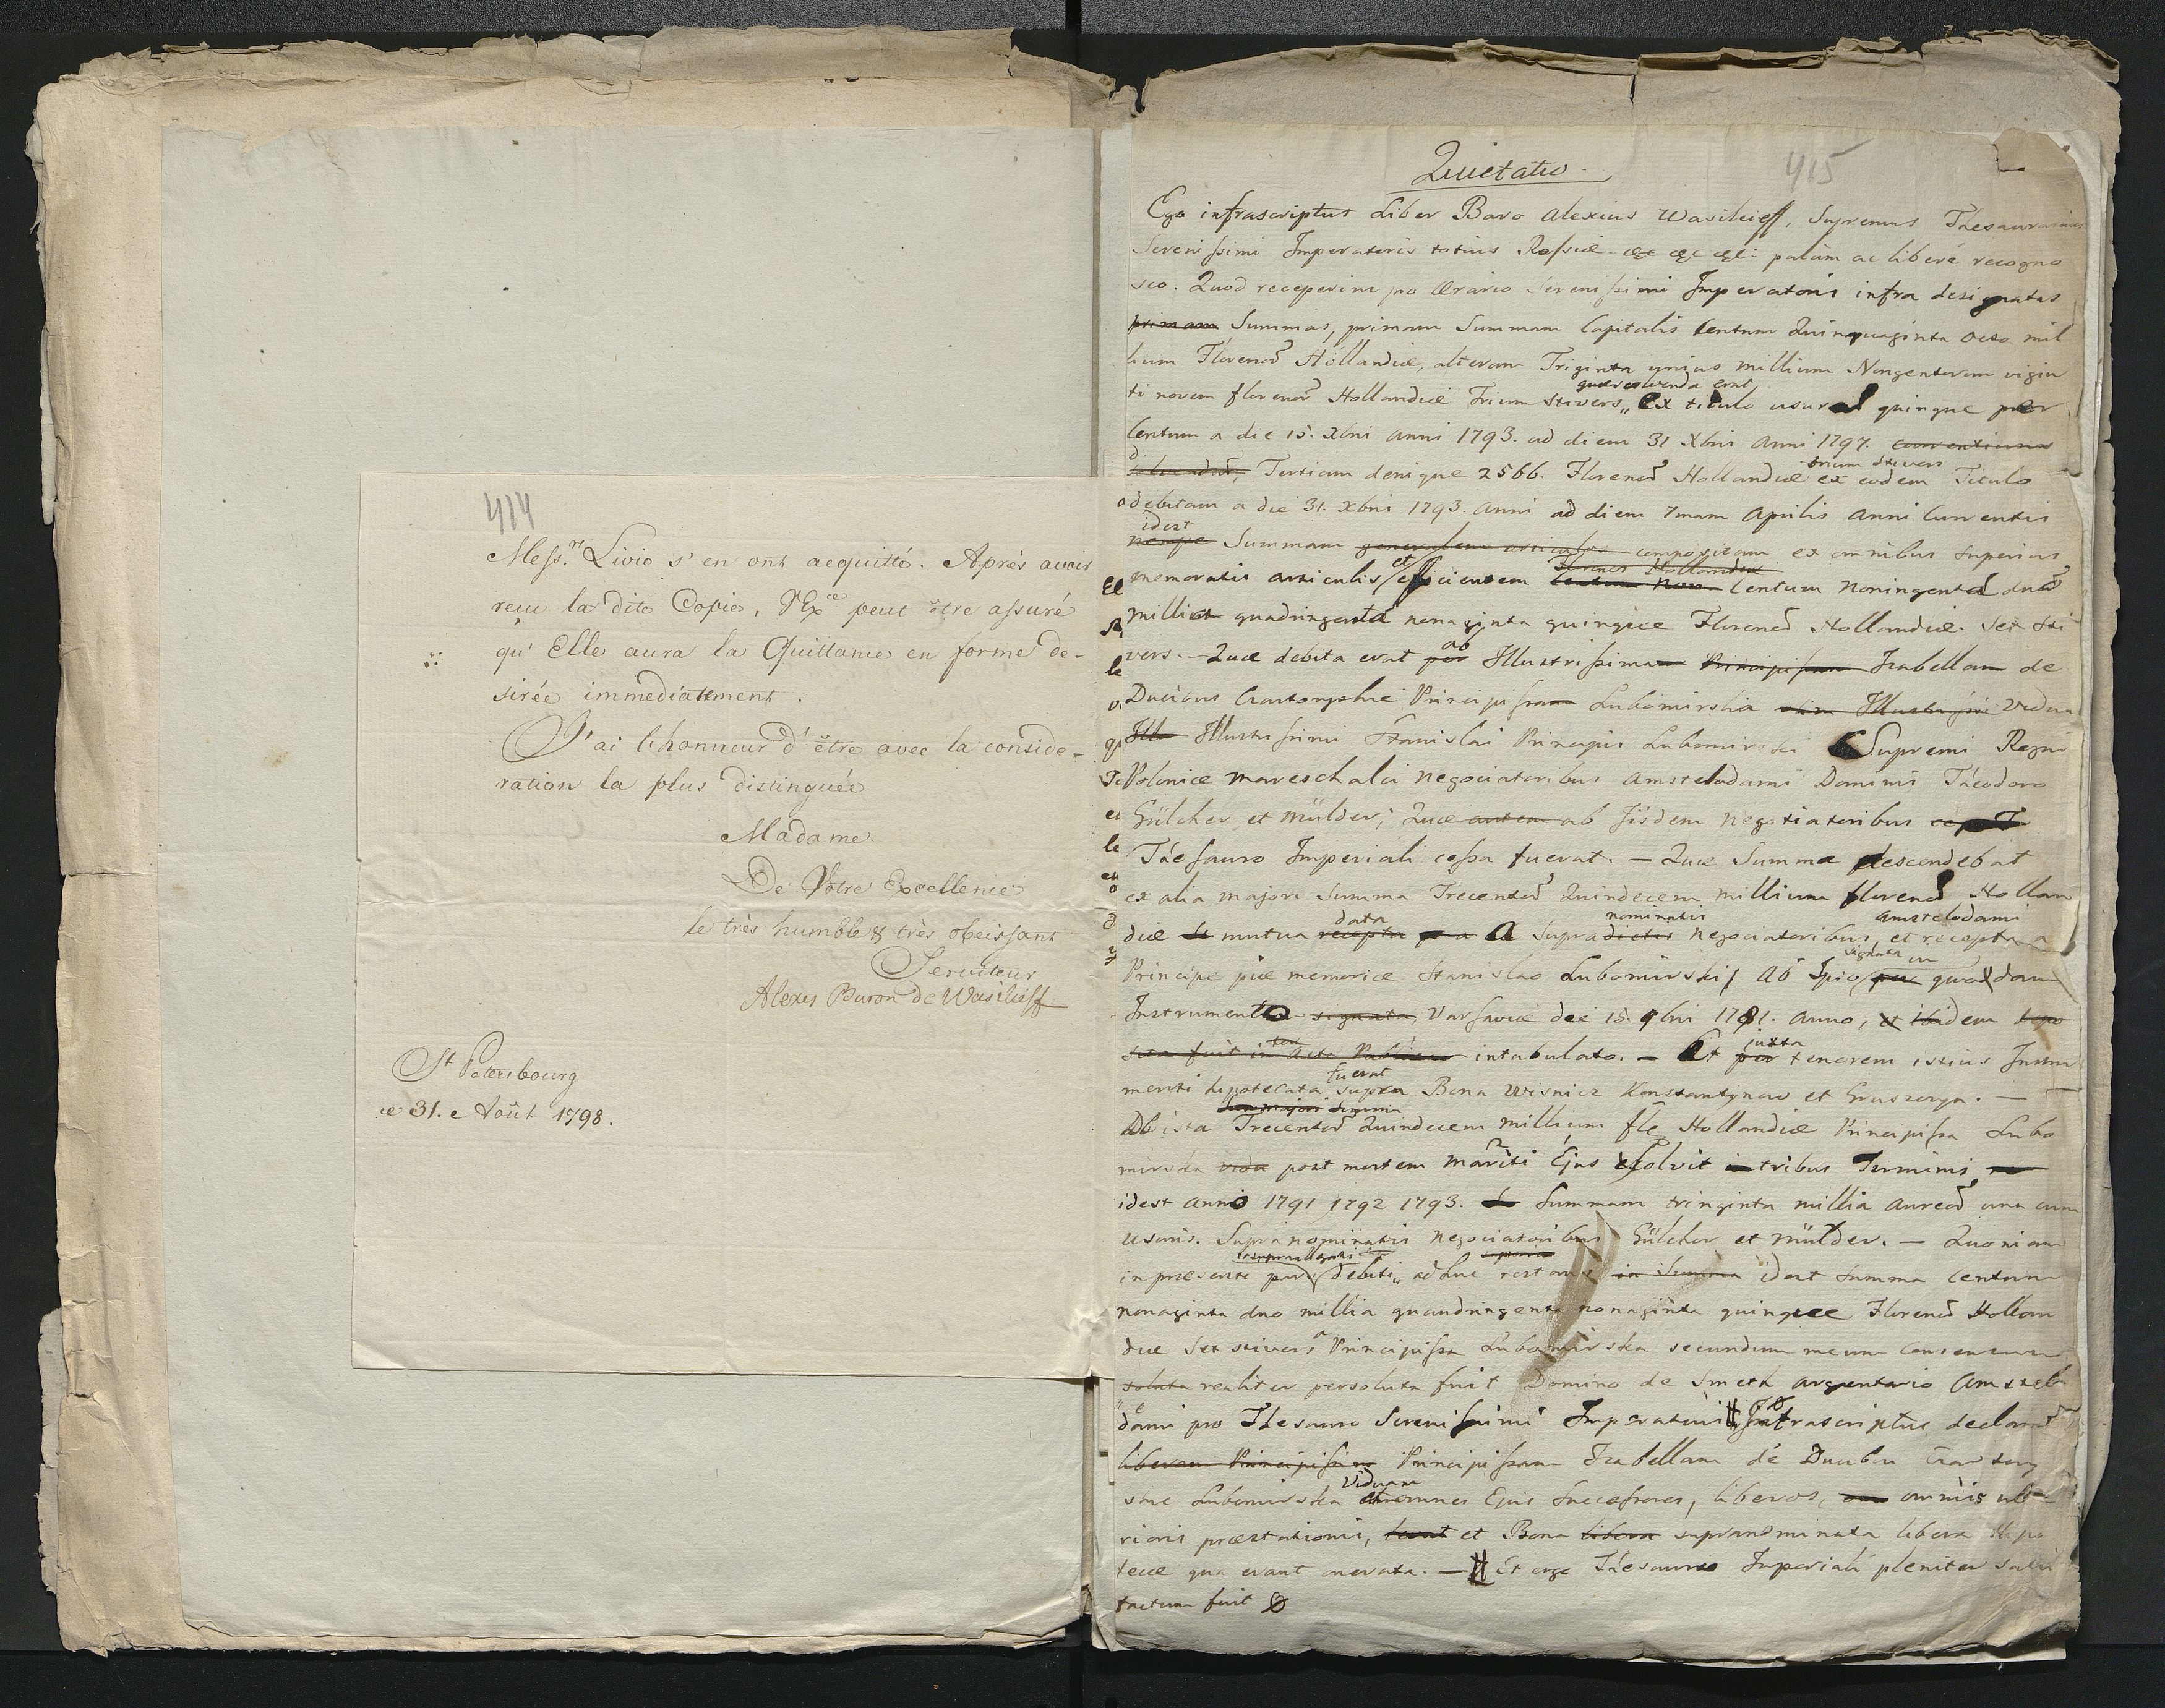 414
Mess.rs Livio s'en ont acquitté. Après avoir
reçu la dite Copie, V'Ex.ce peut être assuré
qu'Elle aura la Quittance en forme de-
sirée immediatement.
J'ai l'honneur d'être avec la conside-
ration la plus distinguée
Madame
De Votre Excellence
le très humble & très obeissant
Serviteur
Alexis Baron de Wasilieff
St Petersbourg
ce 31. Août 1798.
415
Quietatio.
Ego infrascriptus Liber Baro Alexius Wasilieff, Supremus Thesaurarius
Serenissimi Imperatoris totius Rossiæ &c &c &c: palàm ac liberé recogno
sco. Quod receperim pro Ærario Serenissimi Imperatoris infra designatas
primam Summas, primam Summam Capitalis Centum Quinquaginta octo mil
lium Florenor Hollandiæ, alteram Triginta unius millium Nongentorum vigin
quæ solvenda erat
ti novem florenor Hollandiæ Trium Stivers,, Ex titulo usurar quinque per
Centum a die 15. Xbris anni 1793. ad diem 31 Xbris Anni 1797.
trium stivers
Tertiam denique 2566. Florenor Hollandiæ ex eodem Titulo
debitam a die 31. Xbris 1793. anni ad diem 7mam Aprilis anni Currentis
idest
nempe Summam generalem compositam ex omnibus superius
et Florenor Hollandiæ
memoratis articulis efficientem Centum Non Centum Noningenta duo
millia quadringenta nonaginta quinque Florenor Hollandiæ Sex Sti
ab
vers. Quæ debita erat per Illustrissimam Principissam Izabellam de
Ducibus Czartoryskie Principissam Lubomirska Vidua
Illu Illustrissimi Stanislai Principis Lubomirski Supremi Regni
Poloniæ Mareschalci Negociatoribus Amstelodami Dominis Théodoro
Gülcher et Mülder; Quæ autem ab Iisdem Negotiatoribus
Thesauro Imperiali cessa fuerat. — Quæ Summa descendebat
ex alia majori Summa Trecentor Quindecem millium florenor Hollan
data nominatis Amstelodami
diæ mutua recepta a Supradictis Negociatoribus, et recepta a
signata in
Principe piæ memoriæ Stanislao Lubomirski, Ab Ipso per quodam
Instrumento signata Varsaviæ die 15. 9bris 1781. anno, et ibidem
in acta Publica intabulato. — Et per juxta tenorem istius Instru
fuerat
menti hypotecata supra Bona Wisnicz Konstantynow et Gruszczyn. —
Hac majori Summa
Ab ista Trecentor Quindecem millium fle Hollandiæ Principissa Lubo
mirska vidu post mortem mariti Ejus exolvit in tribus Terminis
idest anno 1791 1792 1793. Summam tringinta millia aureor una cum
usuris. Supranominatis Negociatoribus Gülcher et Mülder. — Quoniam
in præsenti pars debiti,, adhuc restans in Summa idest Summa Centum
nonaginta duo millia quandringenta nonaginta quinque Florenor Hollan
diæ Sex stivers, a Principissa Lubomirska secundum meum consensum
soluta realiter persoluta fuit Domino de Smeth argentario Amstelo
dami pro Thesauro Serenissimi Imperatoris Infrascriptus declaro
liberam Principissam Principissam Izabellam de Ducibus Czartory
Viduam
skie Lubomirska et omnes Ejus Successores, liberos, omnis ulte
rioris præstationis, et Bona libera supranominata libera Hipo
tecæ qua erant onerata. — Et ergo Thesauro Imperiali pleniter satis
factum fuit